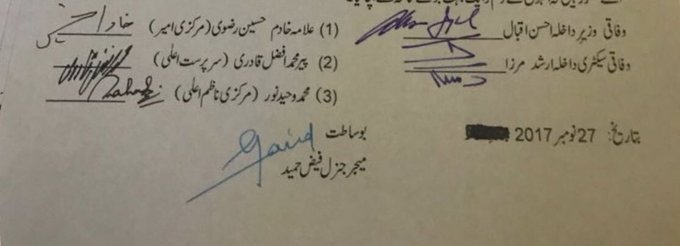 وفاقی وزیر داخلہ احسن اقبال
وفاقی سیکٹری داخلہ ارشد مرزا
(1) علامہ خادم حسین رضوی (مرکزی امیر)
(2) پیر محمد افضل قادری (سرپرست اعلی)
(3) محمد وحید نور (مرکزی ناظم اعلی)
بتاریخ: 27 نومبر 2017
بوساطت
میجر جنرل فیض حمید